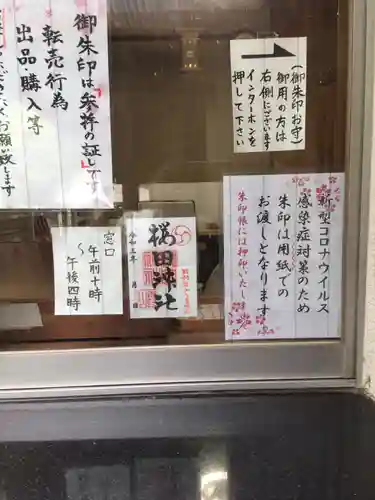 御朱印は『参拝の証』です
転売行為
出品・購入 等
お願い致し
↑
(御朱印お守)
御用の方は
右側にございます
インターホンを
押して下さい
新型コロナウイルス
感染症対策のため
朱印は用紙での
お渡しとなります
朱印帳には押印いた
窓口
午前十時
〜
午後四時
桜田神社